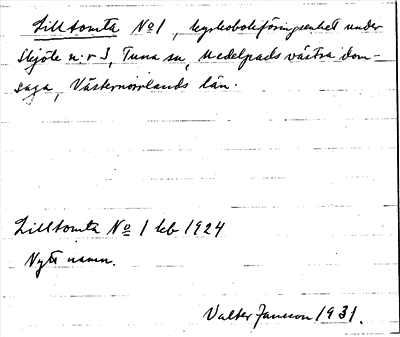 Lilltomta No 1, kyrkobokföringsenhet under
Skjöle n:r 3, Tuna sn, Medelpads västra dom-
saga, Västernorrlands län.
Lilltomta No 1 kb 1924
Nytt namn.
Valter Jansson 1931.